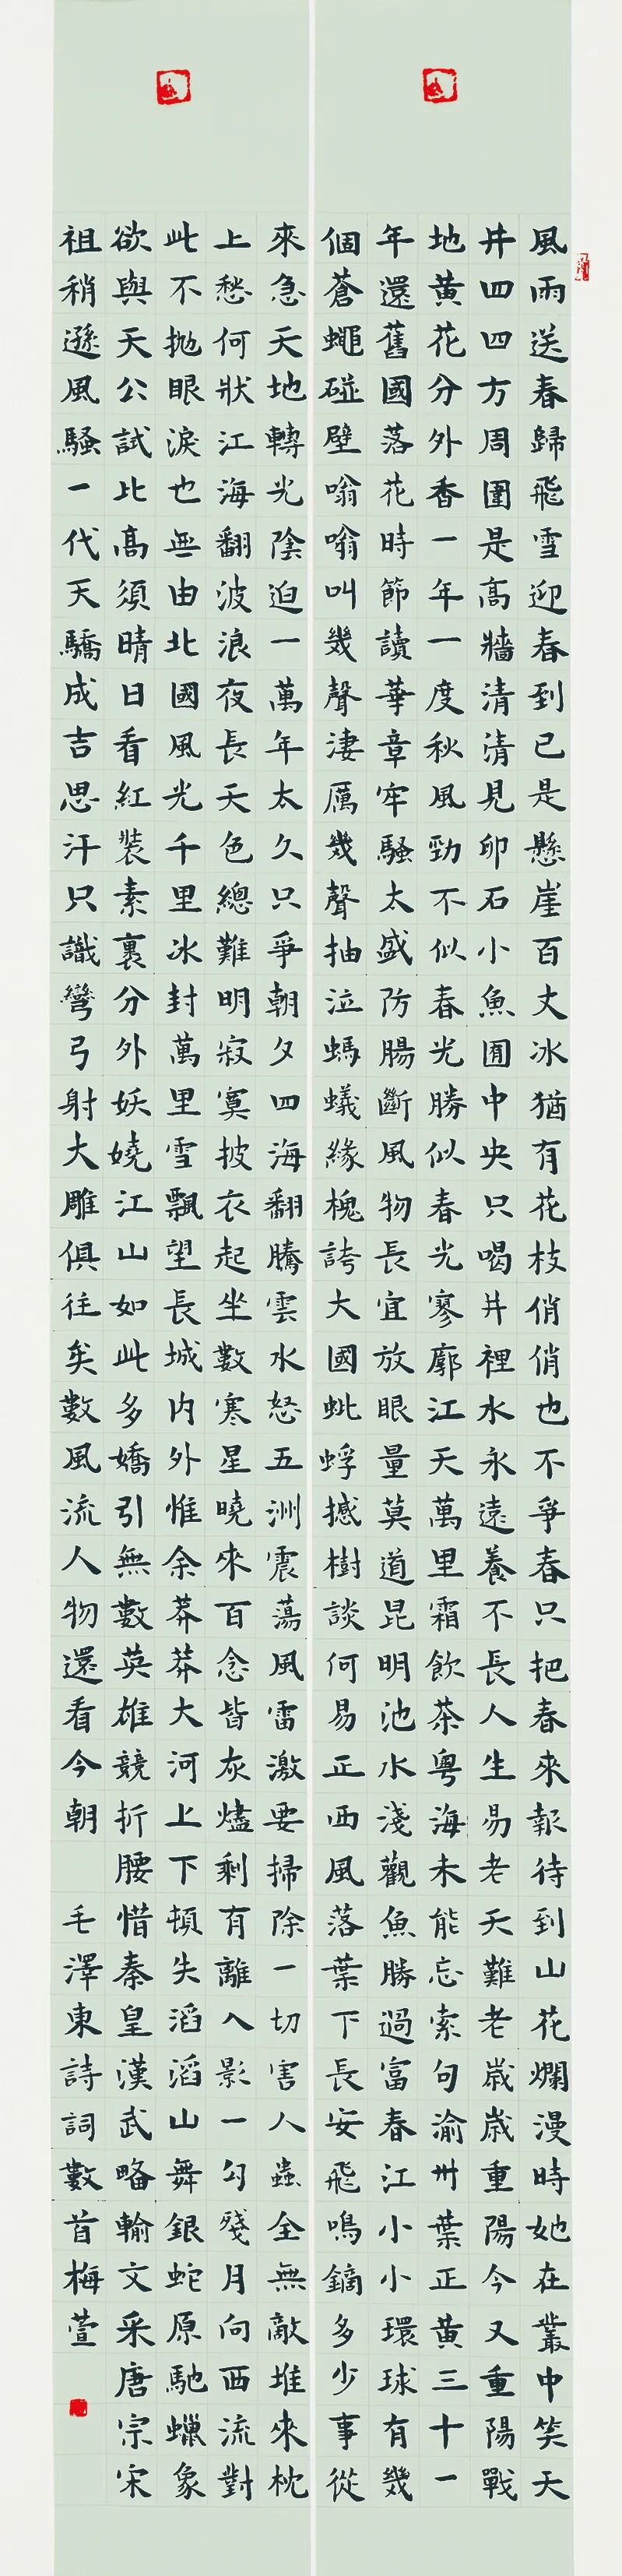 風雨送春歸飛雪迎春到已是懸崖百丈冰猶有花枝俏俏也不爭春只把春來報待到山花爛漫時她在叢中笑天
井四四方周圍是高牆清清見卵石小魚囿中央只喝井裡水永遠養不長人生易老天難老歲歲重陽今又重陽戰
地黃花分外香一年一度秋風勁不似春光勝似春光寥廓江天萬里霜飲茶粵海未能忘索句渝州葉正黃三十一
年還舊國落花時節讀華章牢騷太盛防腸斷風物長宜放眼量莫道昆明池水淺觀魚勝過富春江小小環球有幾
個蒼蠅碰壁嗡嗡叫幾聲淒厲幾聲抽泣螞蟻緣槐誇大國蚍蜉撼樹談何易正西風落葉下長安飛鳴鏑多少事從
來急天地轉光陰迫一萬年太久只爭朝夕四海翻騰雲水怒五洲震蕩風雷激要掃除一切害人蟲全無敵堆來枕
上愁何狀江海翻波浪夜長天色總難明寂寞披衣起坐數寒星曉來百念皆灰燼剩有離人影一勾殘月向西流對
此不拋眼淚也無由北國風光千里冰封萬里雪飄望長城內外惟余莽莽大河上下頓失滔滔山舞銀蛇原馳蠟象
欲與天公試比高須晴日看紅裝素裹分外妖嬈江山如此多嬌引無數英雄競折腰惜秦皇漢武略輸文采唐宗宋
祖稍遜風騷一代天驕成吉思汗只識彎弓射大雕俱往矣數風流人物還看今朝
毛澤東詩詞數首梅萱